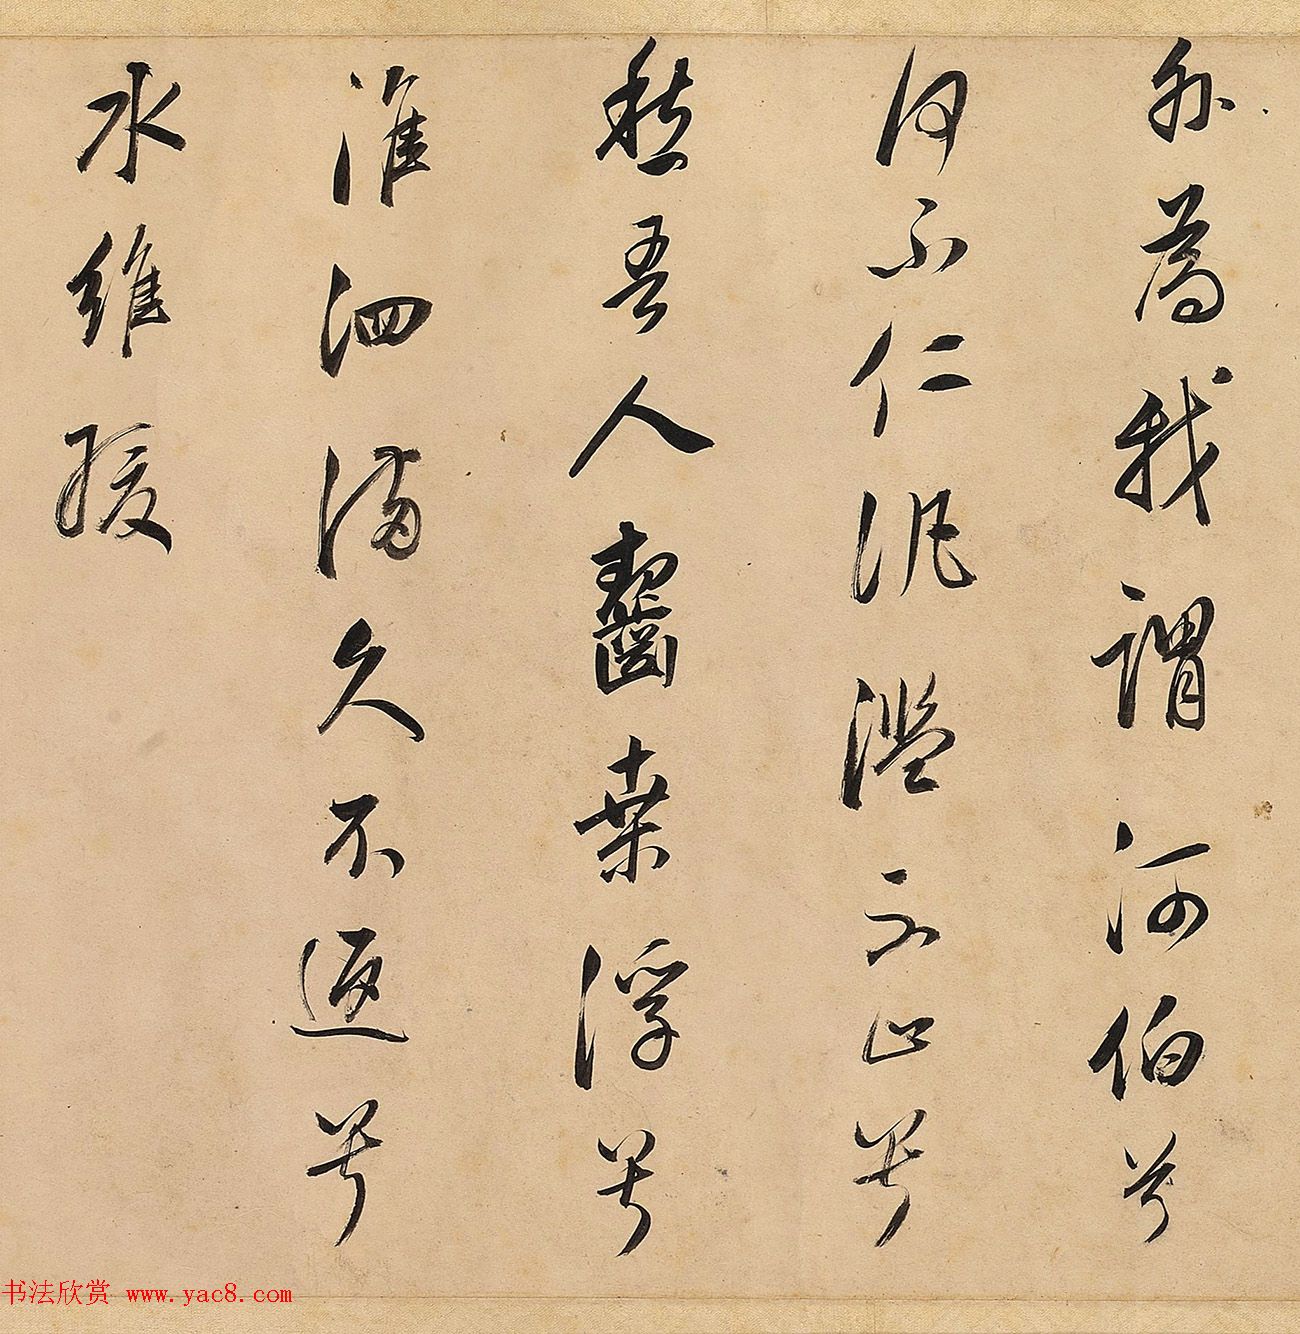 外為我謂河伯兮
何不仁氾濫不止兮
愁吾人齧桒浮兮
淮泗滿久不返兮
水維緩
书法欣赏 www.yac8.com